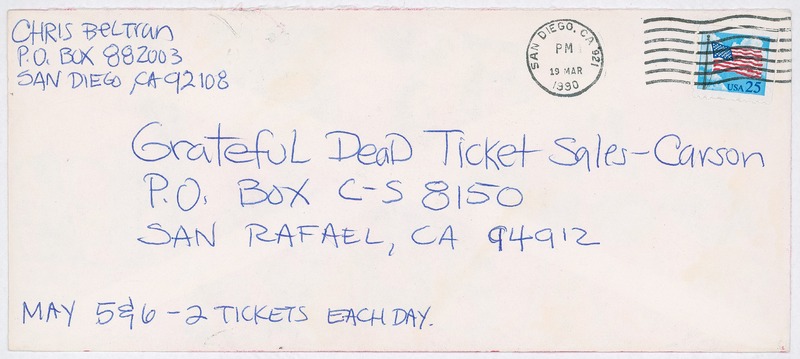 CHRIS BELTRAN
P.O. BOX 882003
SAN DIEGO, CA 92108
SAN DIEGO, CA 921
PM
19 MAR
1990
USA 25
Grateful Dead Ticket Sales-Carson
P.O. BOX C-S 8150
SAN RAFAEL, CA 94912
MAY 5&6 - 2 TICKETS EACH DAY.